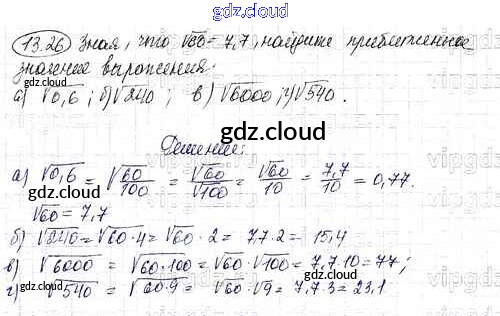 gdz.cloud
13.26 Зная, что √60 = 7,7, найдите приближенное
значение выражения:
а) √0,6; б) √240; в) √6000; г) √540.
gdz.cloud
Решение:
а) √0,6 = √60/100 = √60/√100 = √60/10 = 7,7/10 = 0,77.
√60 = 7,7
б) √240 = √60·4 = √60 · 2 = 7,7·2 = 15,4
в) √6000 = √60·100 = √60 · √100 = 7,7·10 = 77;
г) √540 = √60·9 = √60 · √9 = 7,7·3 = 23,1
gdz.cloud